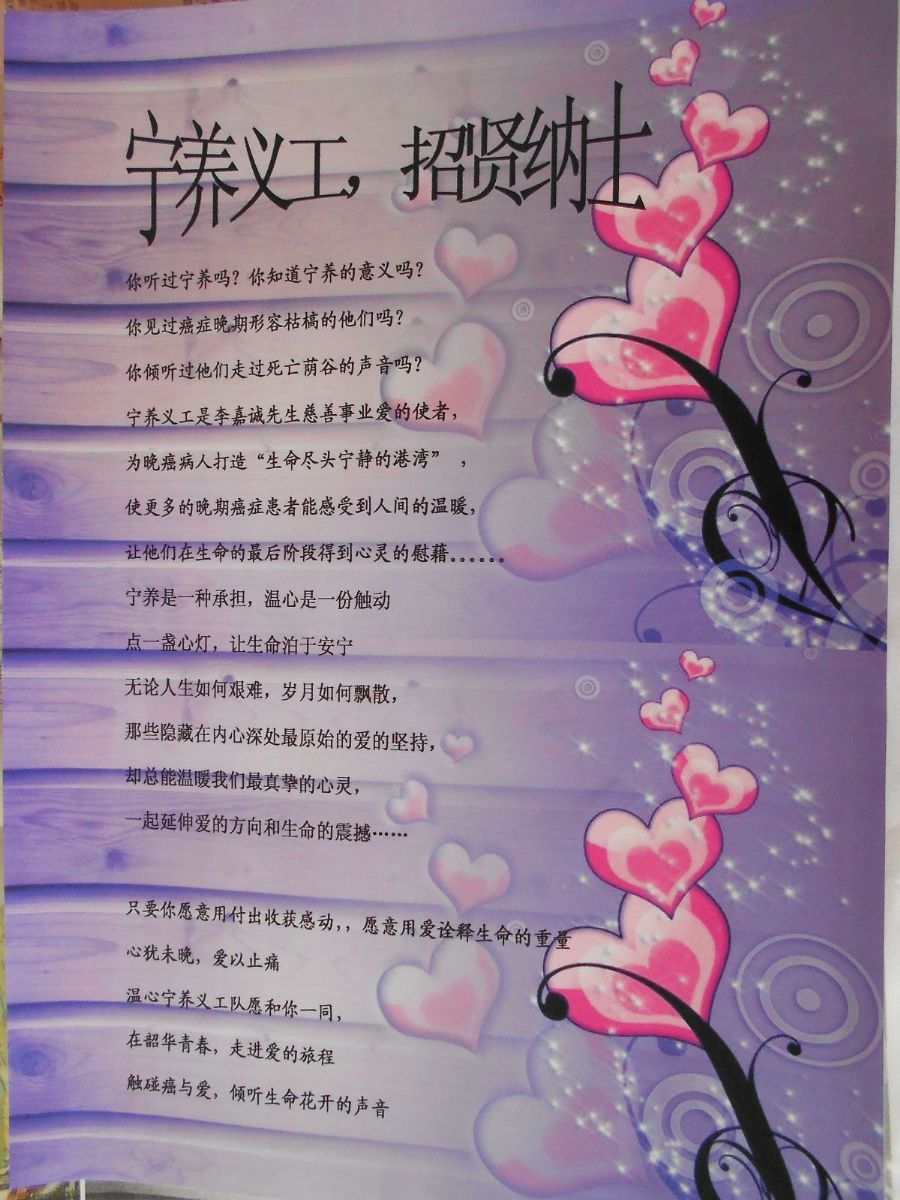 宁养义工，招贤纳士
你听过宁养吗？你知道宁养的意义吗？
你见过癌症晚期形容枯槁的他们吗？
你倾听过他们走过死亡荫谷的声音吗？
宁养义工是李嘉诚先生慈善事业爱的使者，
为晚癌病人打造“生命尽头宁静的港湾” ，
使更多的晚期癌症患者能感受到人间的温暖，
让他们在生命的最后阶段得到心灵的慰藉。。。。。。
宁养是一种承担，温心是一份触动
点一盏心灯，让生命泊于安宁
无论人生如何艰难，岁月如何飘散，
那些隐藏在内心深处最原始的爱的坚持，
却总能温暖我们最真挚的心灵，
一起延伸爱的方向和生命的震撼……
只要你愿意用付出收获感动，，愿意用爱诠释生命的重量
心犹未晚，爱以止痛
温心宁养义工队愿和你一同，
在韶华青春，走进爱的旅程
触碰癌与爱，倾听生命花开的声音